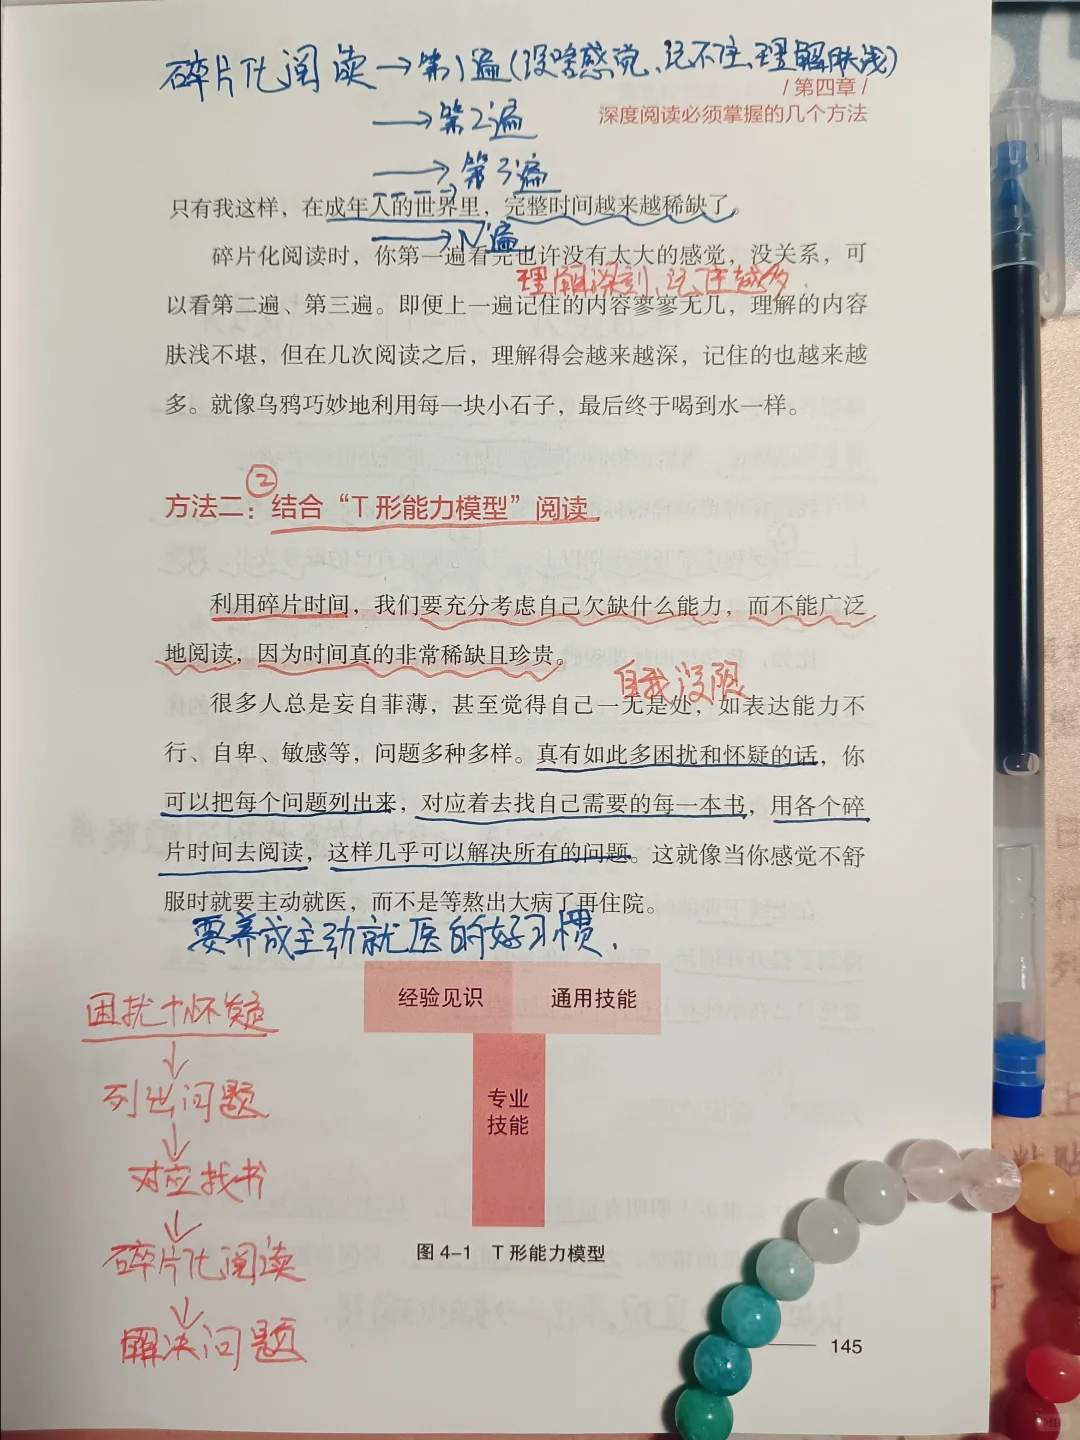 碎片化阅读→第1遍(没啥感觉、记不住、理解肤浅)
/ 第四章 /
→第2遍
深度阅读必须掌握的几个方法
→第3遍
只有我这样，在成年人的世界里，完整时间越来越稀缺了。
→N遍
碎片化阅读时，你第一遍看完也许没有太大的感觉，没关系，可
理解深刻、记住越多.
以看第二遍、第三遍。即便上一遍记住的内容寥寥无几，理解的内容
肤浅不堪，但在几次阅读之后，理解得会越来越深，记住的也越来越
多。就像乌鸦巧妙地利用每一块小石子，最后终于喝到水一样。
②
方法二：结合“T 形能力模型”阅读
利用碎片时间，我们要充分考虑自己欠缺什么能力，而不能广泛
地阅读，因为时间真的非常稀缺且珍贵。
自我设限
很多人总是妄自菲薄，甚至觉得自己一无是处，如表达能力不
行、自卑、敏感等，问题多种多样。真有如此多困扰和怀疑的话，你
可以把每个问题列出来，对应着去找自己需要的每一本书，用各个碎
片时间去阅读，这样几乎可以解决所有的问题。这就像当你感觉不舒
服时就要主动就医，而不是等熬出大病了再住院。
要养成主动就医的好习惯.
经验见识 通用技能
困扰+怀疑
↓
列出问题
专业
技能
↓
对应找书
↓
碎片化阅读
图 4-1 T 形能力模型
↓
解决问题
145